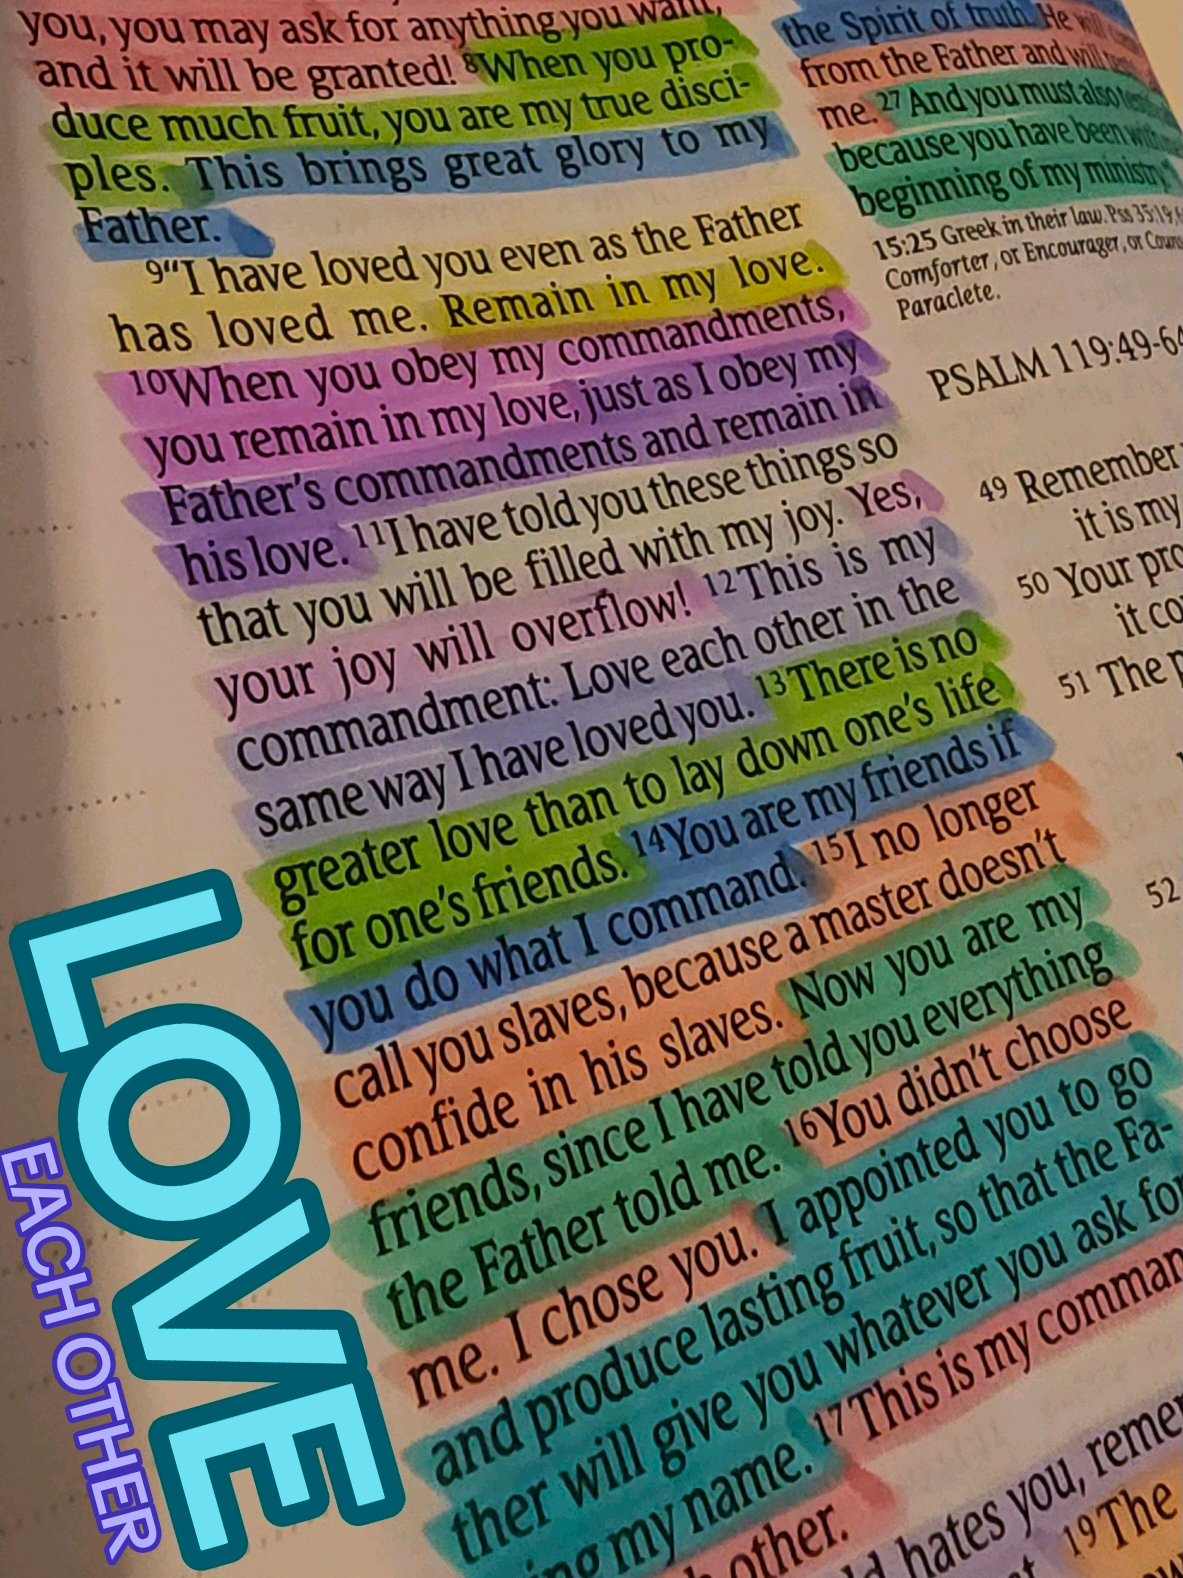 you, you may ask for anything you want,
and it will be granted! 8When you pro-
duce much fruit, you are my true disci-
ples. This brings great glory to my
Father.
9“I have loved you even as the Father
has loved me. Remain in my love.
10When you obey my commandments,
you remain in my love, just as I obey my
Father’s commandments and remain in
his love. 11I have told you these things so
that you will be filled with my joy. Yes,
your joy will overflow! 12This is my
commandment: Love each other in the
same way I have loved you. 13There is no
greater love than to lay down one’s life
for one’s friends. 14You are my friends if
you do what I command. 15I no longer
call you slaves, because a master doesn’t
confide in his slaves. Now you are my
friends, since I have told you everything
the Father told me. 16You didn’t choose
me. I chose you. I appointed you to go
and produce lasting fruit, so that the Fa-
ther will give you whatever you ask for
my name. 17This is my comman
other.
hates you, reme
19The
the Spirit of truth. He will
from the Father and will
me. 27And you must also
because you have been
beginning of my ministry.
15:25 Greek in their law. Pss 35:19;
Comforter, or Encourager, or
Paraclete.
PSALM 119:49-64
49 Remember
it is my
50 Your pro
it co
51 The p
52
LOVE
EACH OTHER